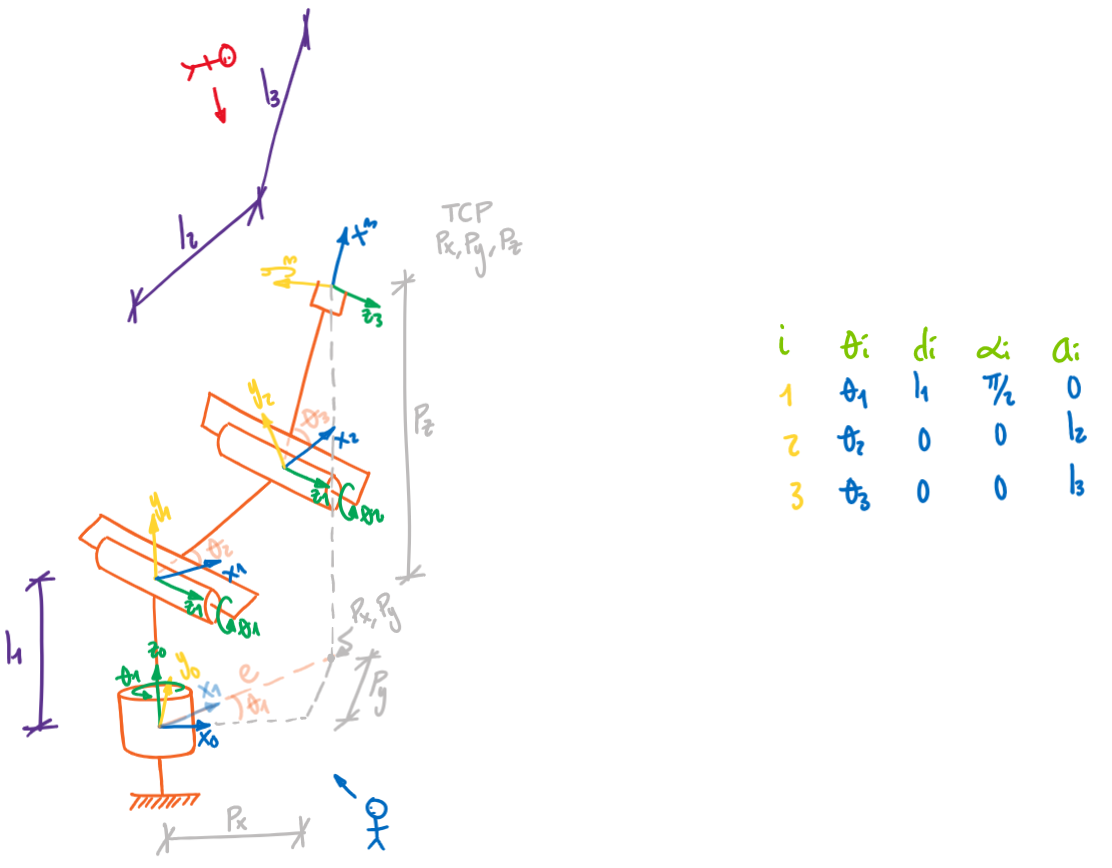 l3
l2
TCP
Px, Py, Pz
x3
y3
z3
Pz
y2
θ3
x2
z1
θ2
y1
θ2
x1
z1
θ1
Px, Py
l1
z0
y0
θ1
x1
e
θ1
x0
Py
Px
i θi di αi ai
1 θ1 l1 π/2 0
2 θ2 0 0 l2
3 θ3 0 0 l3